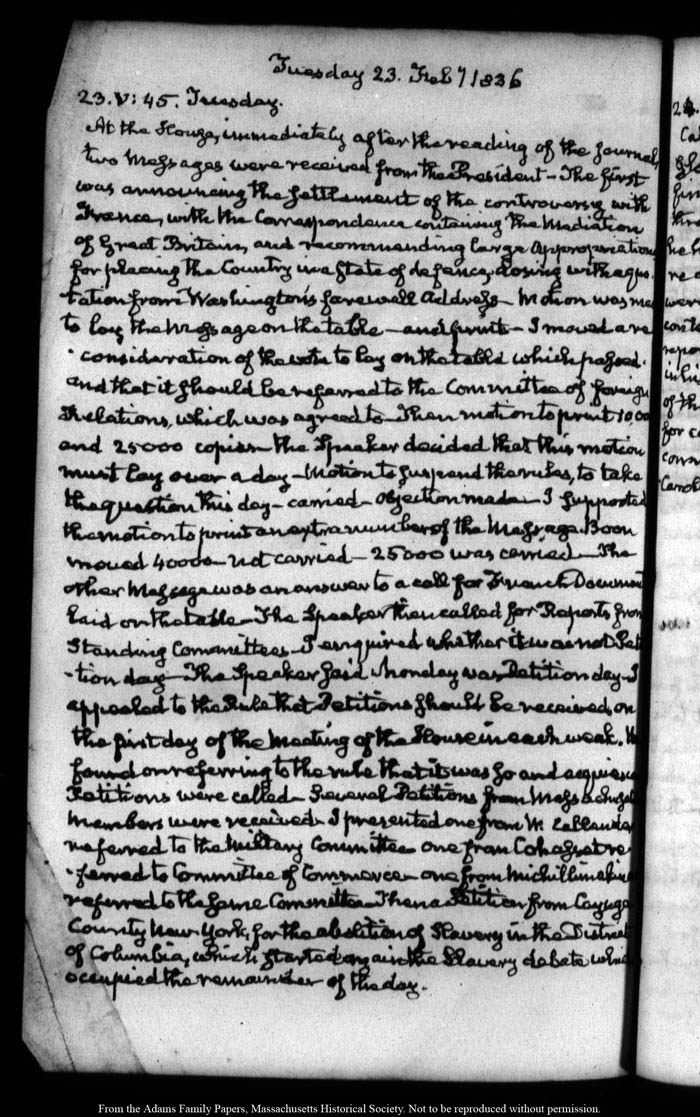 Tuesday 23. Feby 1836
23. V: 45. Tuesday.
At the House, immediately after the reading of the Journal,
two Messages were received from the President – The first
was announcing the settlement of the controversy with
France, with the Correspondence containing the Mediation
of Great Britain, and recommending large Appropriations
for placing the Country in a State of defence, closing with a quo-
tation from Washington's farewell Address – Motion was ma
to lay the Message on the table – and print – I moved a re
-consideration of the vote to lay on the table which passed.
and that it should be referred to the Committee of foreign
Relations, which was agreed to – Then motion to print 10,000
and 25000 copies – the Speaker decided that this motion
must lay over a day – Motion to suspend the rules, to take
the question this day – carried – objection made – I supported
the motion to print an extra number of the Message. Boon
moved 40000 – not carried – 25000 was carried – The
other Message was an answer to a call for French Document
Laid on the table – The Speaker then called for Reports from
Standing Committees – I enquired whether it was not Peti
-tion day – The Speaker said Monday was Petition day – I
appealed to the Rule that Petitions should be received, on
the first day of the Meeting of the House in each week. He
found on referring to the rule that it was so and acquiesc
Petitions were called – Several Petitions from Massachuse
members were received – I presented one from W.
referred to the Military Committee one from Cohasset re
-ferred to Committee of Commerce – one from Michillimakina
referred to the same Committee – Then a Petition from Cayuga
County New-York, for the abolition of Slavery in the District
of Columbia, which started again the Slavery debate which
occupied the remainder of the day.
24.
Ca
of th
for c
Carol
From the Adams Family Papers, Massachusetts Historical Society. Not to be reproduced without permission.